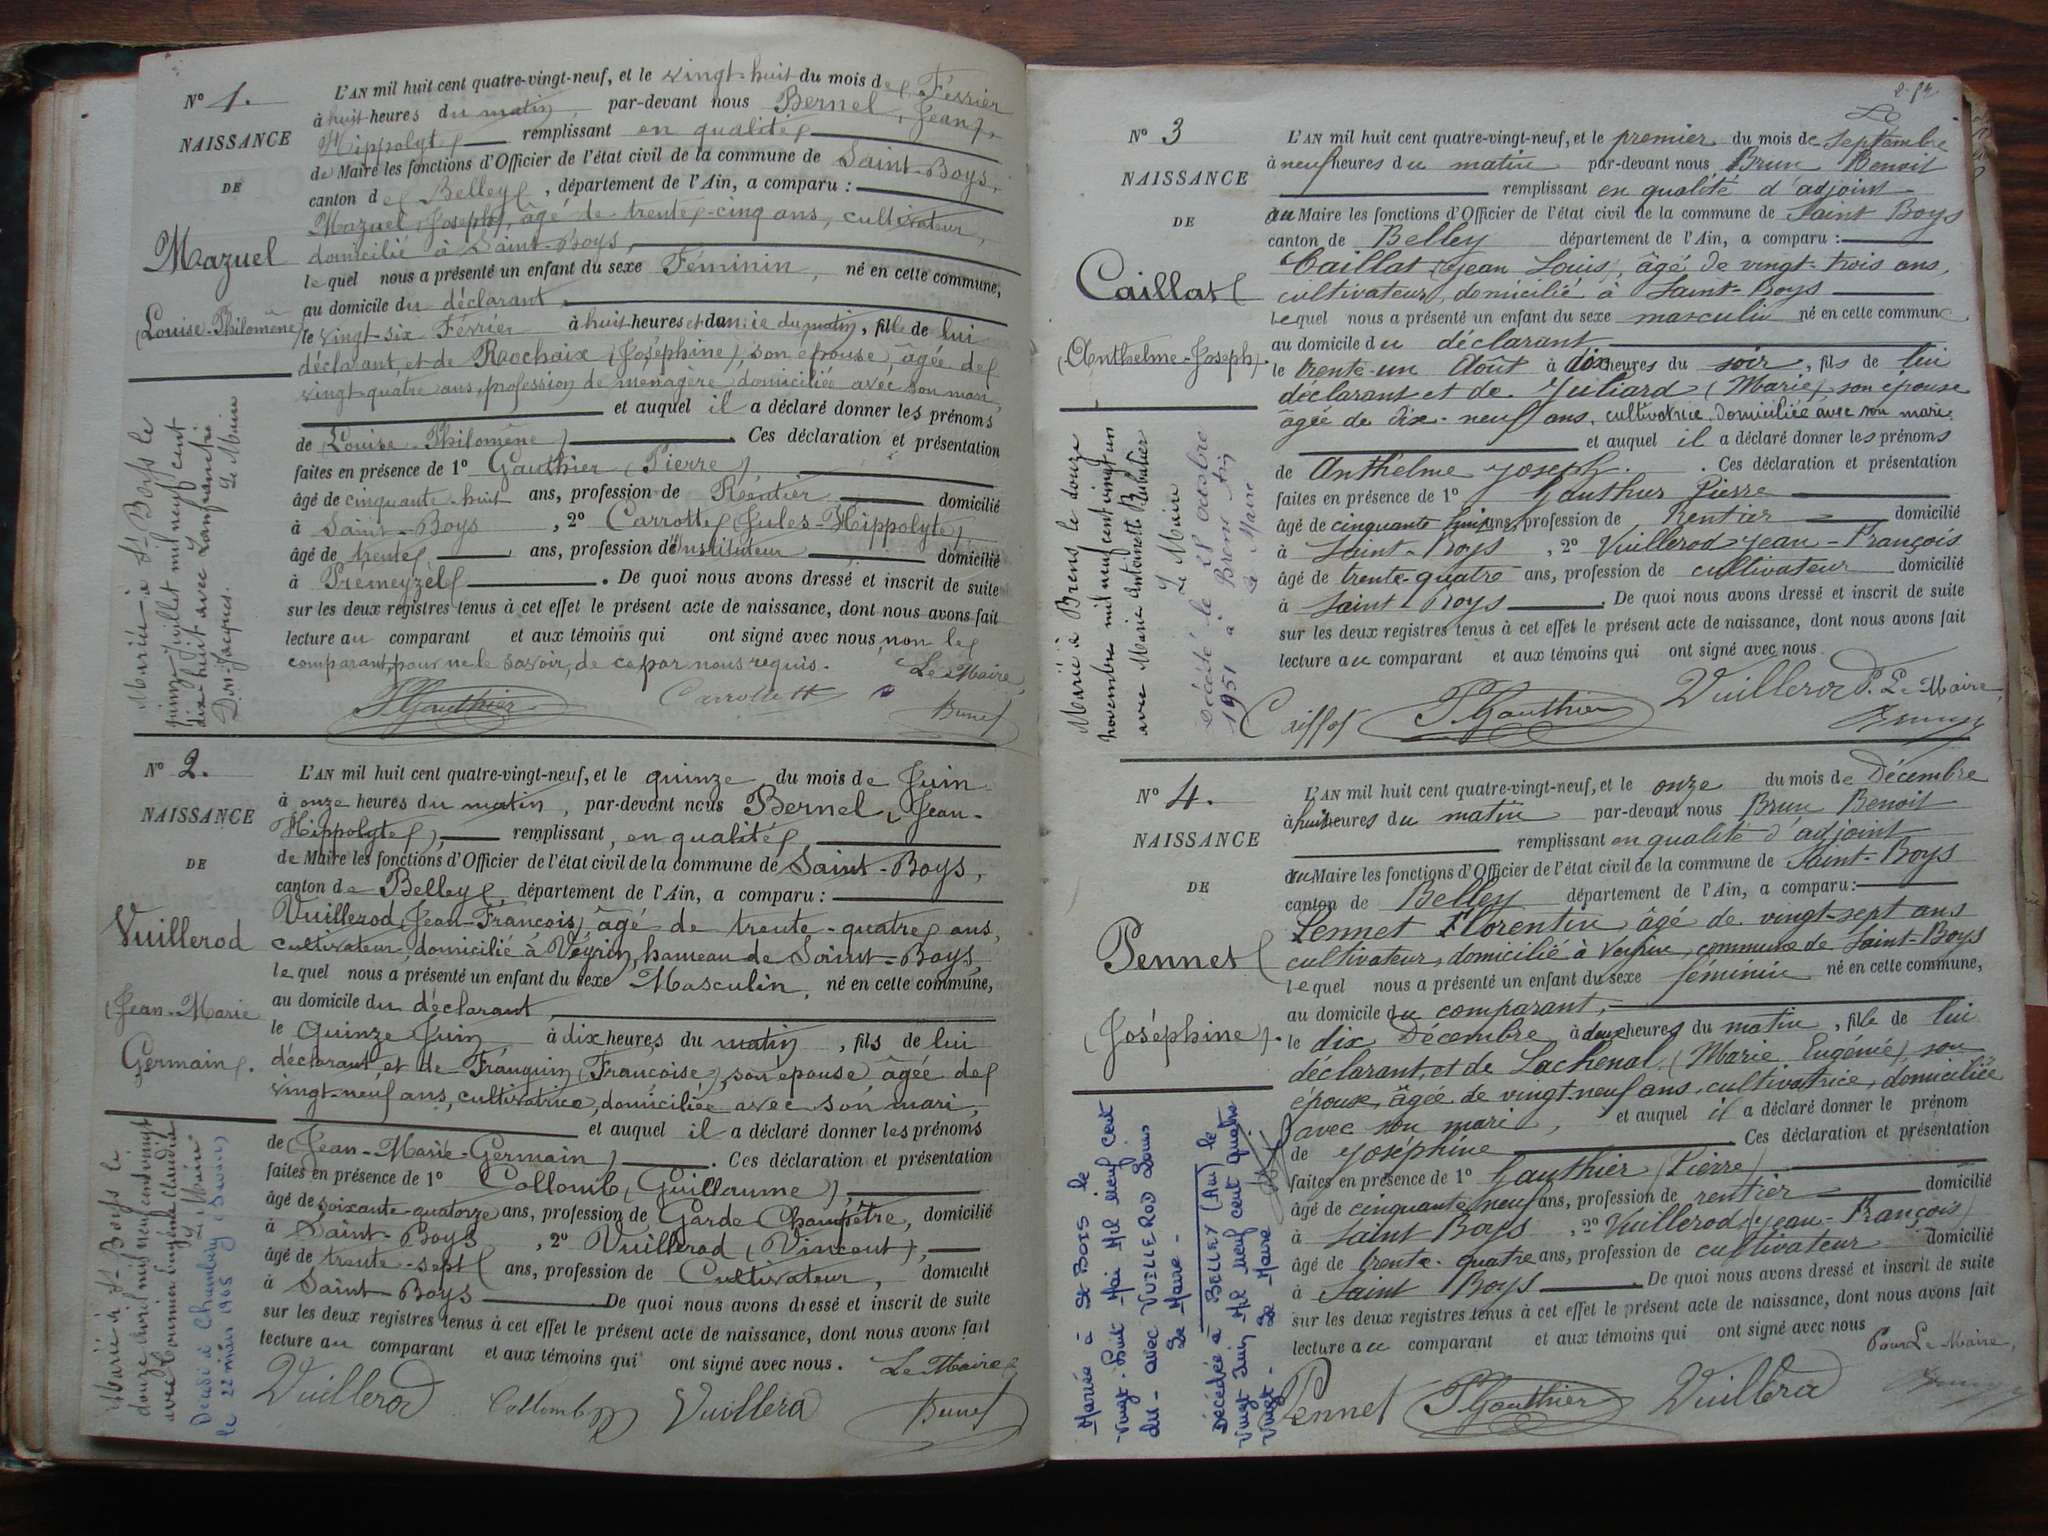 Nº 1.
NAISSANCE
DE
Mazuel
(Louise-Philomène)
L'AN mil huit cent quatre-vingt-neuf, et le vingt-huit du mois de Février
à huit heures du matin par-devant nous Bernel, Jean-
Hippolyte remplissant en qualité
de Maire les fonctions d'Officier de l'état civil de la commune de Saint-Boys,
canton de Belley, département de l'Ain, a comparu :
Mazuel (Joseph), âgé de trente-cinq ans, cultivateur,
domicilié à Saint-Boys,
lequel nous a présenté un enfant du sexe Féminin, né en cette commune,
au domicile du déclarant,
le vingt-six Février à huit heures et demie du matin, fille de lui
déclarant, et de Rochaix (Joséphine), son épouse, âgée de
vingt-quatre ans, profession de ménagère, domiciliée avec son mari,
et auquel il a déclaré donner les prénoms
de (Louise-Philomène). Ces déclaration et présentation
faites en présence de 1º Gauthier (Pierre)
âgé de cinquante-huit ans, profession de Rentier domicilié
à Saint-Boys, 2º Carrotte (Jules-Hippolyte)
âgé de trente ans, profession d'Instituteur domicilié
à Prémeyzel. De quoi nous avons dressé et inscrit de suite
sur les deux registres tenus à cet effet le présent acte de naissance, dont nous avons fait
lecture au comparant et aux témoins qui ont signé avec nous, non le
comparant, pour ne le savoir, de ce par nous requis. Le Maire,
PGauthier
Bernel
Mariée à St Boys le
quinze juillet mil neuf cent
dix-huit avec Lanfranchi
Don Jacques. Le Maire
Nº 2.
NAISSANCE
DE
Vuillerod
(Jean-Marie
Germain).
L'AN mil huit cent quatre-vingt-neuf, et le quinze du mois de Juin
à onze heures du matin, par-devant nous Bernel, Jean-
Hippolyte), remplissant, en qualité
de Maire les fonctions d'Officier de l'état civil de la commune de Saint-Boys,
canton de Belley, département de l'Ain, a comparu :
Vuillerod (Jean-François), âgé de trente-quatre ans,
cultivateur, domicilié à Veyrin, hameau de Saint-Boys
lequel nous a présenté un enfant du sexe Masculin, né en cette commune,
au domicile du déclarant,
le Quinze Juin à dix heures du matin, fils de lui
déclarant, et de Franquin (Françoise), son épouse, âgée de
vingt-neuf ans, cultivatrice, domiciliée avec son mari,
et auquel il a déclaré donner les prénoms
de (Jean-Marie-Germain). Ces déclaration et présentation
faites en présence de 1º Collomb (Guillaume),
âgé de soixante-quatorze ans, profession de Garde-Champêtre, domicilié
à Saint-Boys, 2º Vuillerod (Vincent),
âgé de trente-sept ans, profession de Cultivateur, domicilié
à Saint-Boys De quoi nous avons dressé et inscrit de suite
sur les deux registres tenus à cet effet le présent acte de naissance, dont nous avons fait
lecture au comparant et aux témoins qui ont signé avec nous. Le Maire
Vuillerod Collomb Vuillerod Bernel
Marié à St-Boys le
douze avril mil neuf cent vingt
avec Eugénie Claudia
Le Maire
Décédé à Chambéry (Savoie)
le 22 mars 1965
Nº 3
NAISSANCE
DE
Caillat
(Anthelme-Joseph).
L'AN mil huit cent quatre-vingt-neuf, et le premier du mois de Septembre
à neuf heures du matin par-devant nous Brun Benoit
remplissant en qualité d'adjoint
au Maire les fonctions d'Officier de l'état civil de la commune de Saint Boys
canton de Belley département de l'Ain, a comparu :
Caillat (Jean Louis), âgé de vingt-trois ans,
cultivateur, domicilié à Saint-Boys
lequel nous a présenté un enfant du sexe masculin né en cette commune
au domicile du déclarant
le trente-un Août à dix heures du soir, fils de lui
déclarant et de Juliard (Marie), son épouse
âgée de dix-neuf ans, cultivatrice, domiciliée avec son mari
et auquel il a déclaré donner les prénoms
de Anthelme Joseph. Ces déclaration et présentation
faites en présence de 1º Gauthier Pierre
âgé de cinquante huit ans, profession de Rentier domicilié
à Saint-Boys, 2º Vuillerod Jean-François
âgé de trente-quatre ans, profession de cultivateur domicilié
à Saint-Boys. De quoi nous avons dressé et inscrit de suite
sur les deux registres tenus à cet effet le présent acte de naissance, dont nous avons fait
lecture au comparant et aux témoins qui ont signé avec nous
PGauthier Vuillerod P. Le Maire,
Marié à Brens le douze
novembre mil neuf cent vingt un
avec Marie Antoinette Rubatier
Le Maire
Décédé le 28 octobre
1951 à Brens Ain
Le Maire
Nº 4.
NAISSANCE
DE
Pennet
(Joséphine).
L'AN mil huit cent quatre-vingt-neuf, et le onze du mois de Décembre
à huit heures du matin par-devant nous Brun Benoit
remplissant en qualité d'adjoint
au Maire les fonctions d'Officier de l'état civil de la commune de Saint-Boys
canton de Belley département de l'Ain, a comparu :
Pennet Florentin, âgé de vingt-sept ans
cultivateur, domicilié à Veyrin, commune de Saint-Boys
lequel nous a présenté un enfant du sexe féminin né en cette commune,
au domicile du comparant,
le dix Décembre à deux heures du matin, fille de lui
déclarant, et de Lachenal (Marie Eugénie), son
épouse, âgée de vingt-neuf ans, cultivatrice, domiciliée
avec son mari, et auquel il a déclaré donner le prénom
de Joséphine Ces déclaration et présentation
faites en présence de 1º Gauthier (Pierre)
âgé de cinquante neuf ans, profession de rentier domicilié
à Saint Boys, 2º Vuillerod (Jean-François)
âgé de trente-quatre ans, profession de cultivateur domicilié
à Saint Boys. De quoi nous avons dressé et inscrit de suite
sur les deux registres tenus à cet effet le présent acte de naissance, dont nous avons fait
lecture au comparant et aux témoins qui ont signé avec nous
Pour Le Maire,
Pennet PGauthier Vuillerod
Mariée à St Bois le
vingt-huit Mai Mil neuf cent
dix - avec VUILLEROD Louis
Le Maire -
Décédée à BELLEY (Ain) le
vingt Juin Mil neuf cent quatre
vingt - Le Maire